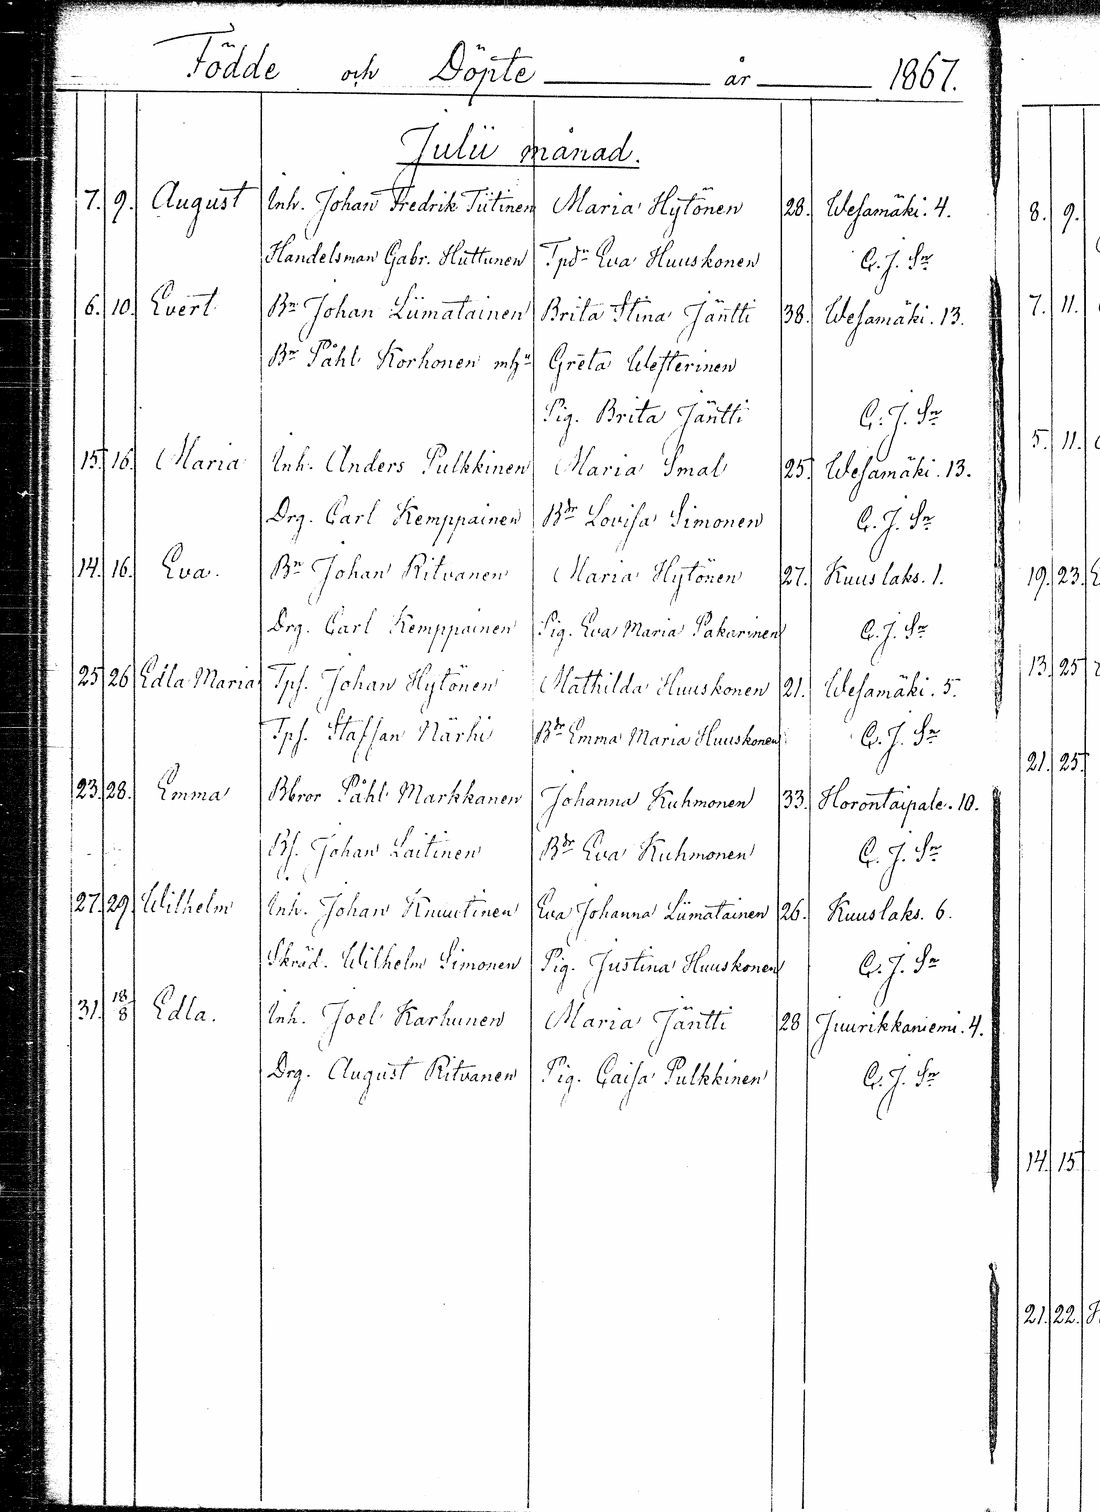 Födde och Döpte år 1867.
Julii månad.
7. 9. August Inh. Johan Fredrik Tiitinen Maria Hytönen 28. Wesamäki. 4.
Handelsman Gabr. Huttunen Tpdr Eva Huuskonen C. J. Sn
6. 10. Evert Bn Johan Liimatainen Brita Stina Jäntti 38. Wesamäki. 13.
Bn Påhl Korhonen mhu Greta Westerinen
Pig. Brita Jäntti C. J. Sn
15. 16. Maria Inh. Anders Pulkkinen Maria Smal 25. Wesamäki. 13.
Drg. Carl Kemppainen Bdr Lovisa Simonen C. J. Sn
14. 16. Eva. Bn Johan Ritvanen Maria Hytönen 27. Kuuslaks. 1.
Drg. Carl Kemppainen Pig. Eva Maria Pakarinen C. J. Sn
25 26 Edla Maria Tpf. Johan Hytönen Mathilda Huuskonen 21. Wesamäki. 5.
Tpf. Staffan Närhi Bdr Emma Maria Huuskonen C. J. Sn
23. 28. Emma Bbror Påhl Markkanen Johanna Kuhmonen 33. Horontaipale. 10.
Bf. Johan Laitinen Bdr Eva Kuhmonen C. J. Sn
27. 29. Wilhelm Inh. Johan Knuutinen Eva Johanna Liimatainen 26. Kuuslaks. 6.
Skräd. Wilhelm Simonen Pig. Justina Huuskonen C. J. Sn
31. 18/8 Edla. Inh. Joel Karhunen Maria Jäntti 28 Juurikkaniemi. 4.
Drg. August Ritvanen Pig. Caisa Pulkkinen C. J. Sn
8. 9.
7. 11.
5. 11.
19. 23.
13. 25
21. 25.
14. 15
21. 22.